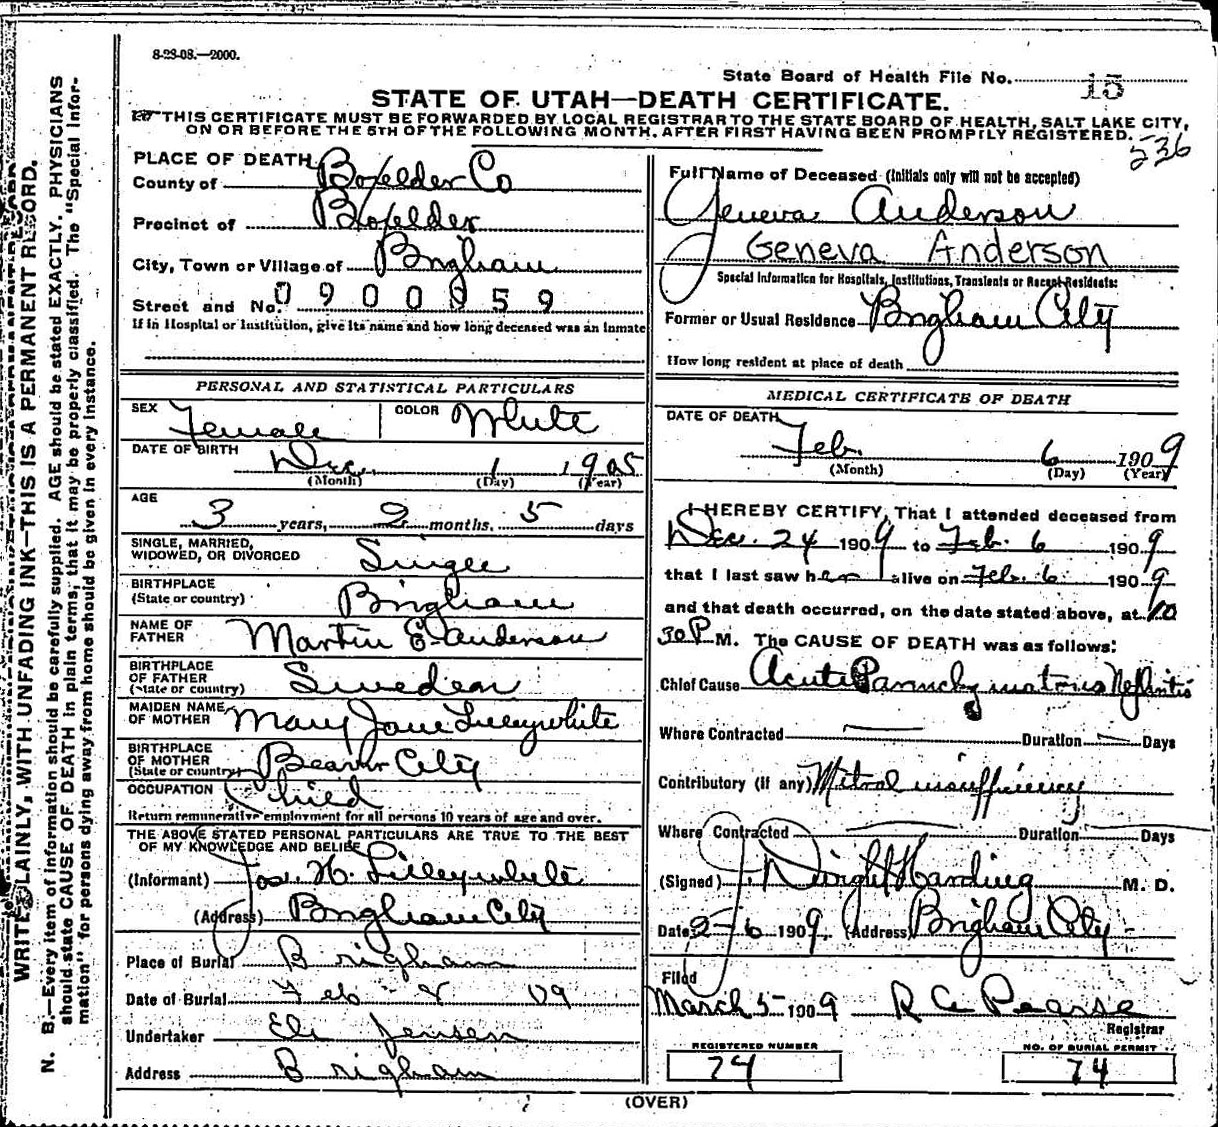 8-23-08.—2000.
State Board of Health File No. 15
STATE OF UTAH—DEATH CERTIFICATE.
THIS CERTIFICATE MUST BE FORWARDED BY LOCAL REGISTRAR TO THE STATE BOARD OF HEALTH, SALT LAKE CITY,
ON OR BEFORE THE 5TH OF THE FOLLOWING MONTH, AFTER FIRST HAVING BEEN PROMPTLY REGISTERED.
536
WRITE PLAINLY, WITH UNFADING INK—THIS IS A PERMANENT RECORD.
N. B.—Every item of information should be carefully supplied. AGE should be stated EXACTLY. PHYSICIANS
should state CAUSE OF DEATH in plain terms, that it may be properly classified. The "Special Infor-
mation" for persons dying away from home should be given in every instance.
PLACE OF DEATH
County of Boxelder Co
Precinct of Boxelder
City, Town or Village of Brigham
Street and No. 0 9 0 0 0 5 9
If in Hospital or Institution, give its name and how long deceased was an inmate
PERSONAL AND STATISTICAL PARTICULARS
SEX Female COLOR White
DATE OF BIRTH
Dec. 1 1905
(Month) (Day) (Year)
AGE
3 years, 2 months, 5 days
SINGLE, MARRIED,
WIDOWED, OR DIVORCED Single
BIRTHPLACE
(State or country) Brigham
NAME OF
FATHER Martin E Anderson
BIRTHPLACE
OF FATHER
(State or country) Sweden
MAIDEN NAME
OF MOTHER Mary Jane Lilleywhite
BIRTHPLACE
OF MOTHER
(State or country) Beaver City
OCCUPATION Child
Return remunerative employment for all persons 10 years of age and over.
THE ABOVE STATED PERSONAL PARTICULARS ARE TRUE TO THE BEST
OF MY KNOWLEDGE AND BELIEF
(Informant) Jos. H. Lilleywhite
(Address) Brigham City
Place of Burial Brigham
Date of Burial Feb 8 09
Undertaker Eli Jensen
Address Brigham
Full Name of Deceased (Initials only will not be accepted)
Geneva Anderson
Geneva Anderson
Special Information for Hospitals, Institutions, Transients or Recent Residents:
Former or Usual Residence Brigham City
How long resident at place of death
MEDICAL CERTIFICATE OF DEATH
DATE OF DEATH
Feb. 6 1909
(Month) (Day) (Year)
I HEREBY CERTIFY, That I attended deceased from
Dec. 24 1909 to Feb. 6 1909
that I last saw her alive on Feb. 6 1909
and that death occurred, on the date stated above, at 10
30 P M. The CAUSE OF DEATH was as follows:
Chief Cause Acute Parinchymatous Nephritis
Where Contracted — Duration — Days
Contributory (if any) Mitral insufficiency
Where Contracted — Duration — Days
(Signed) J. Dwight Harding M. D.
Date 2-6 1909. (Address) Brigham City
Filed
March 5 1909 R A Pearse
Registrar
REGISTERED NUMBER NO. OF BURIAL PERMIT
74 74
(OVER)